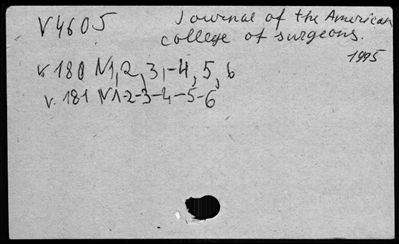 V4605
Journal of the American
college of surgeons.
1995
v 180 N1, 2, 3, -4, 5, 6
v. 181 N1-2-3-4-5-6